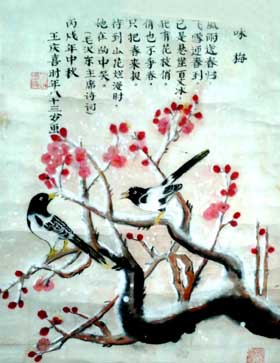 咏梅
風雨送春归
飞雪迎春到
已是悬崖百丈冰
犹有花枝俏
俏也不争春
只把春来报
待到山花烂漫时
她在丛中笑
(毛泽东主席诗词)
丙戌年中秋
王庆喜时年八十三岁画